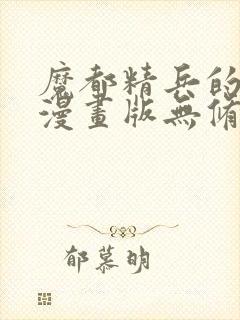 魔都精兵的
漫畫版無脩
郁慕明